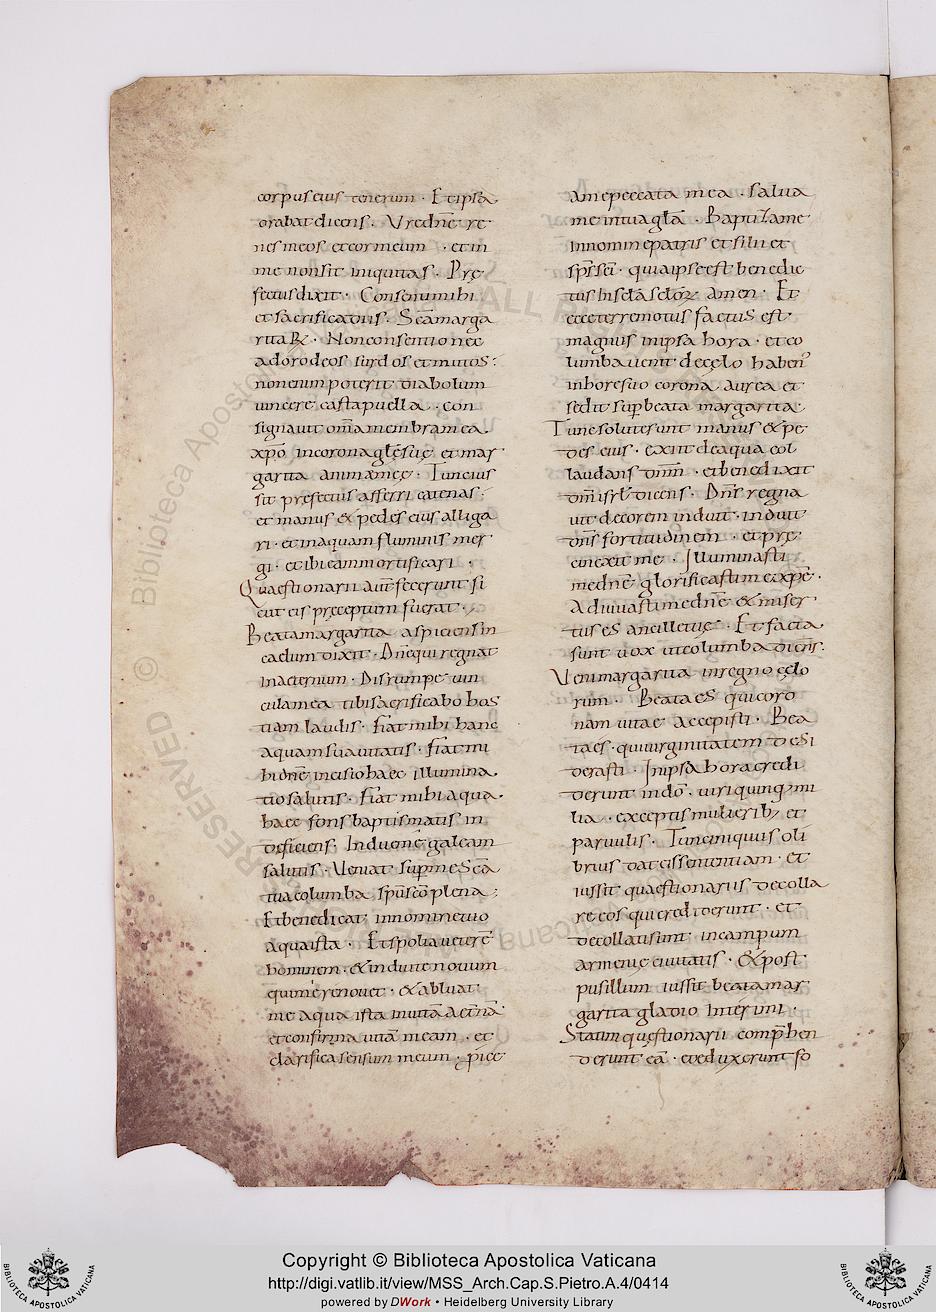 corpus eius tenerum · Et ipsa
orabat dicens · Ure dnē re
nes meos et cor meum · et in
me non sit iniquitas · Prę
fectus dixit · Consenti mihi
et sacrifica diis · Scā marga
rita ꝶ · Non consentio nec
adoro deos surdos et mutos :
non enim poterit diabolum
uincere casta puella · con
signauit om̄a membra mea ·
xpō in corona glę suę et mar
garita anima meę · Tunc ius
sit pręfectus afferri catenas ·
et manus & pedes eius alliga
ri · et in aquam fluminis mer
gi · et ibi eam mortificari ·
Quaestionarii aut̄ fecerunt si
cut eis pręceptum fuerat ·
Beata margarita aspiciens in
caelum dixit · Dnē qui regnas
in aeternum · Disrumpe uin
cula mea tibi sacrificabo hos
tiam laudis · fiat mihi hanc
aquam suauitatis · fiat mi
hi dnē incisio haec illumina
tio salutis · fiat mihi aqua
haec fons baptismatis in
deficiens · Indue me galeam
salutis · Veniat sup̄ me scā
tua columba spū scō plena ;
Et benedicat in nomine tuo
aqua ista · Et spolia uetere
hominem · & indui te nouum
qui me renouet · & abluat
me aqua ista in uitā aet̄nā ·
et confirma uitā meam · et
clarifica sensum meum · ꝓice
am peccata mea · salua
me in tua glā · Baptiza me
in nomine patris et filii et
sp̄s scī · quia ipse est benedic
tus in sclā sclōꝝ amen · Et
ecce terremotus factus est
magnus in ipsa hora · et co
lumba uenit de cęlo habens
in hore suo corona aurea et
sedit sup̄ beata margarita ·
Tunc solute sunt manus & pe
des eius · exiit de aqua col
laudans dnm̄ · et benedixit
dm̄ isrl̄ dicens · Dns̄ regna
uit decorem induit · induit
dns̄ fortitudinem · et prę
cinexit me · Illuminasti
me dnē glorificasti me xp̄e ·
Adiuuasti me dnē & miser
tus es ancille tuę · Et facta
sunt uox ut columba dicens :
Veni margarita in regno cęlo
rum · Beata es qui coro
nam uitae accepisti · Bea
ta es · qui uirginitatem desi
derasti · In ipsa hora credi
derunt in dō · uiri quinqꝫ mi
lia · exceptis mulieribꝫ et
paruulis · Tunc iniquus oli
brius dat eis sententiam · et
iussit quaestionariis decolla
re eos qui crediderunt · et
decollati sunt in campum
armenię ciuitatis · & post
pusillum iussit beata mar
garita gladio interimi ·
Statim quęstionarii comp̄hen
derunt eā · et eduxerunt fo
Copyright © Biblioteca Apostolica Vaticana
http://digi.vatlib.it/view/MSS_Arch.Cap.S.Pietro.A.4/0414
powered by DWork • Heidelberg University Library